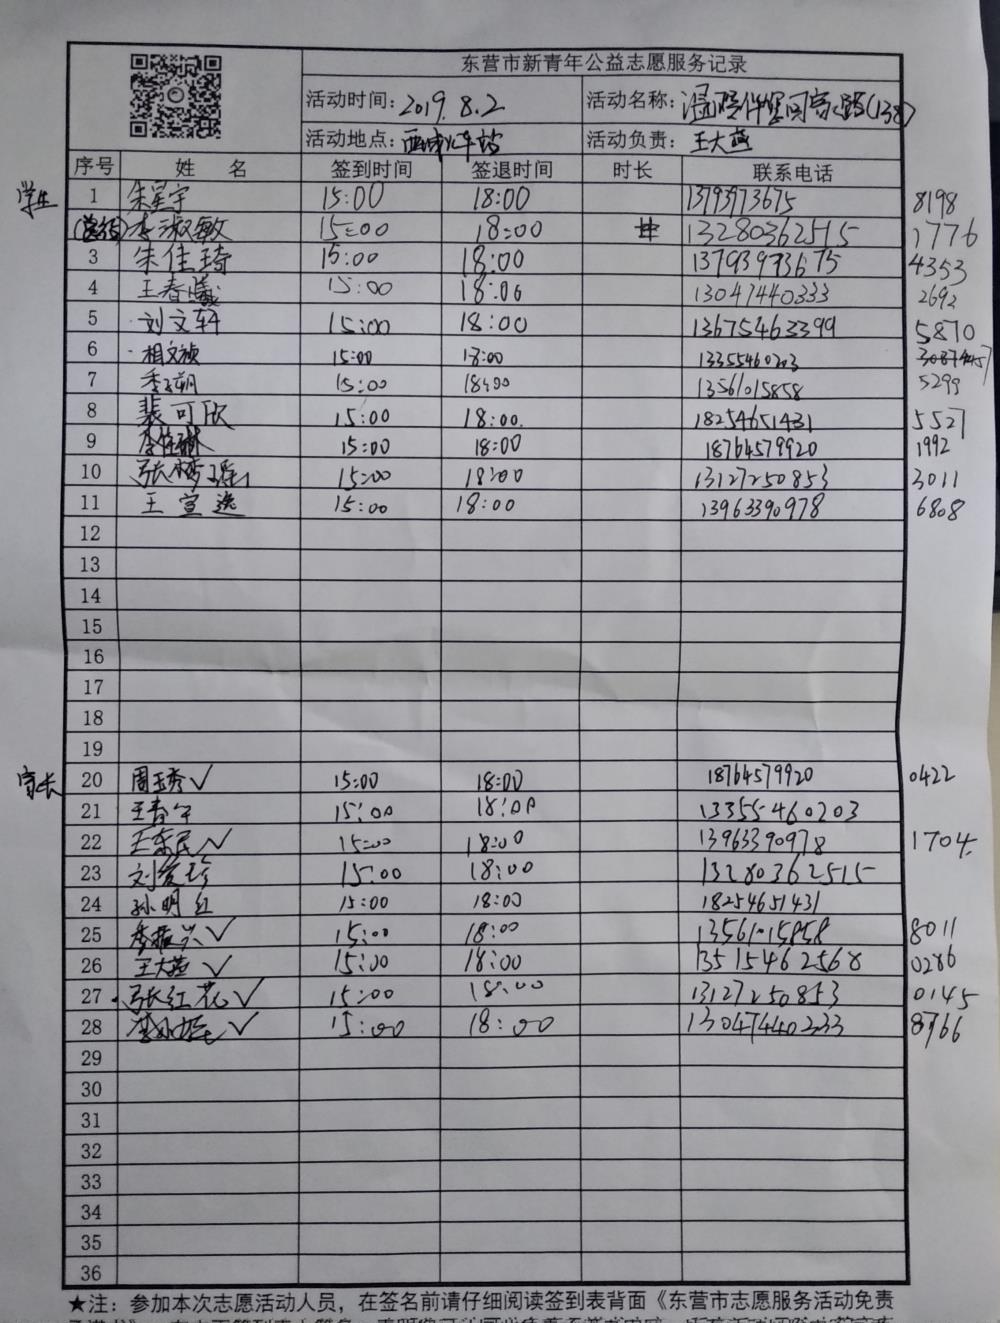 东营市新青年公益志愿服务记录
活动时间: 2019.8.2 活动名称: 温暖伴您回家路(138)
活动地点: 西城火车站 活动负责: 王大燕
序号 姓名 签到时间 签退时间 时长 联系电话
学生 1 朱星宇 15:00 18:00 13793973675 8198
李淑敏 15:00 18:00 13280362515 1776
3 朱佳琦 15:00 18:00 13793973675 4353
4 王春曦 15:00 18:00 13047440333 2692
5 刘文轩 15:00 18:00 13675463399 5870
6 相文祯 15:00 18:00 13355460203
7 季子朔 15:00 18:00 13561015858 5299
8 裴可欣 15:00 18:00. 18254651431 5527
9 15:00 18:00 18764579920 1992
10 张梦瑶 15:00 18:00 13127250853 3011
11 王宣逸 15:00 18:00 13963390978 6808
12
13
14
15
16
17
18
19
家长 20 周玉秀✓ 15:00 18:00 18764579920 0422
21 王春午 15:00 18:00 13355460203
22 王东民✓ 15:00 18:00 13963390978 1704.
23 刘爱珍 15:00 18:00 13280362515
24 孙明红 15:00 18:00 18254651431
25 季振兴✓ 15:00 18:00 13561015858 8011
26 王大燕✓ 15:00 18:00 13515462568 0286
27 张红花✓ 15:00 18:00 13127250853 0145
28 15:00 18:00 13047440333 8766
29
30
31
32
33
34
35
36
★注：参加本次志愿活动人员，在签名前请仔细阅读签到表背面《东营市志愿服务活动免责